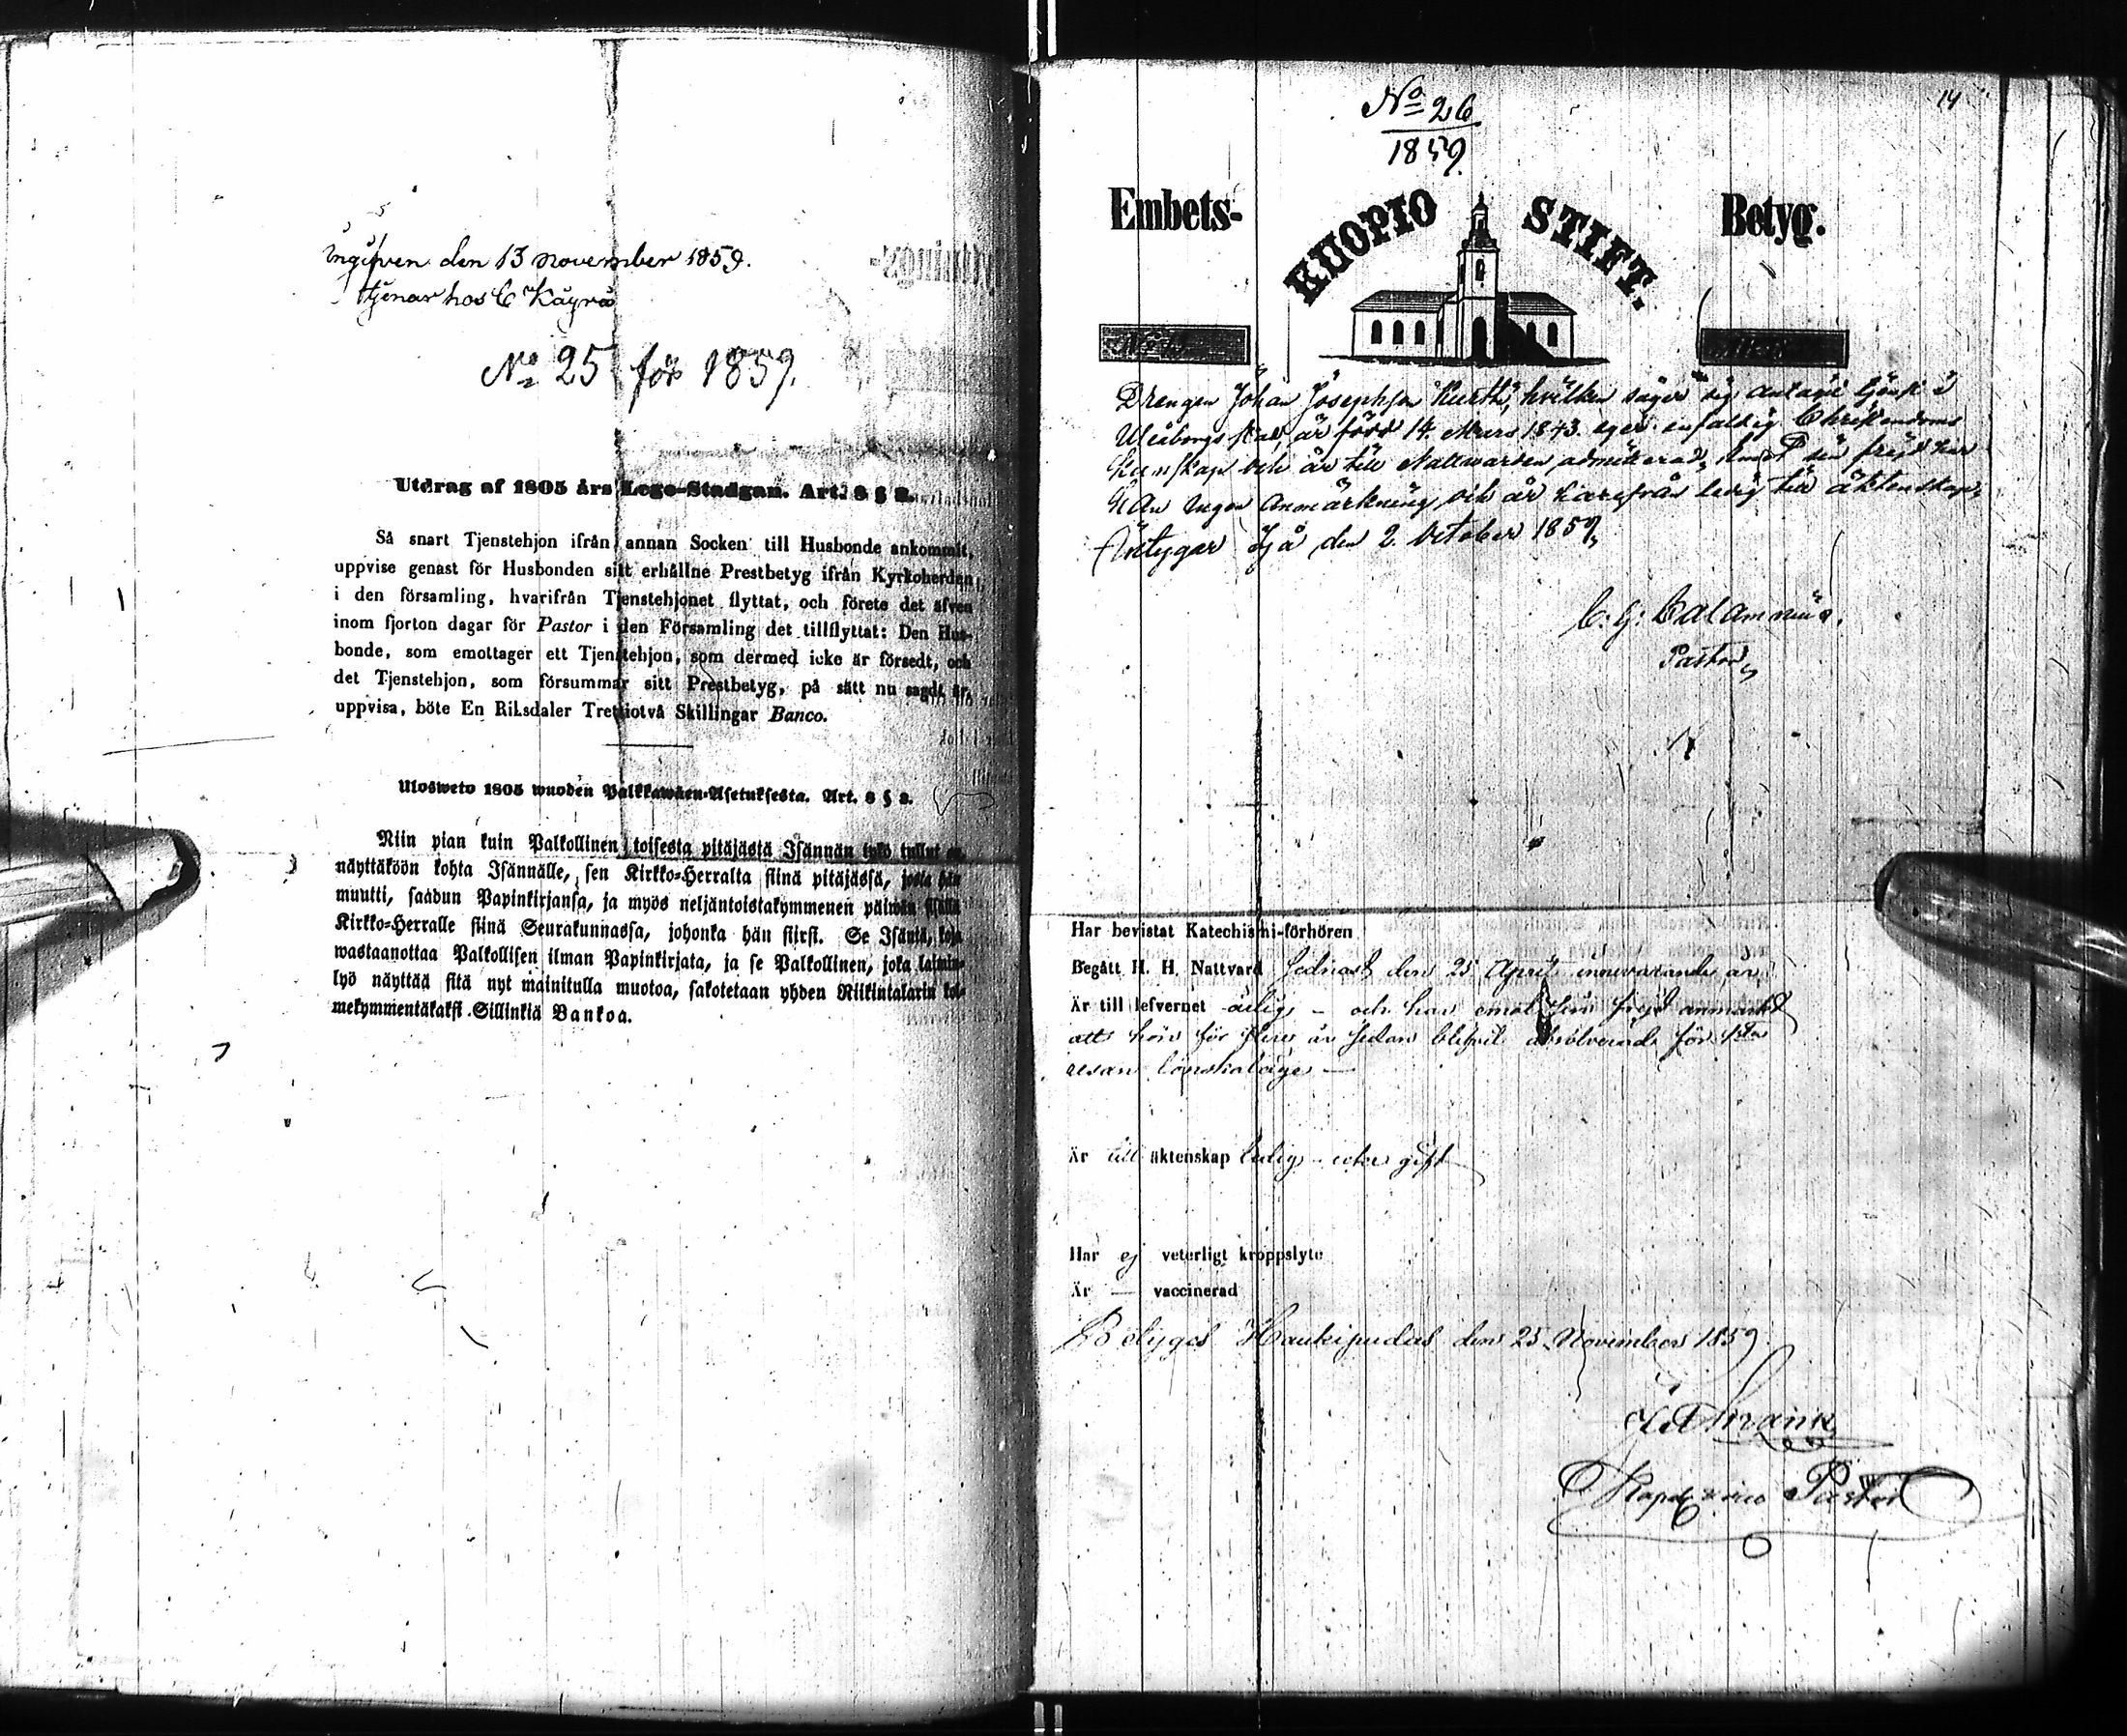 Ingifven den 13 november 1859.
tjenar hos C Käyrä
No 25 för 1859.
Utdrag af 1805 års Lego-Stadgan. Art. 8 § 2.
Så snart Tjenstehjon ifrån annan Socken till Husbonde ankommit,
uppvise genast för Husbonden sitt erhållne Prestbetyg ifrån Kyrkoherden
i den församling, hvarifrån Tjenstehjonet flyttat, och förete det äfven
inom fjorton dagar för Pastor i den Församling det tillflyttat: Den Hus-
bonde, som emottager ett Tjenstehjon, som dermed icke är försedt, och
det Tjenstehjon, som försummar sitt Prestbetyg, på sätt nu sagdt är,
uppvisa, böte En Riksdaler Trettiotvå Skillingar Banco.
Ulosweto 1805 wuoden Palkkawäen-Asetuksesta. Art. 8 § 2.
Niin pian kuin Palkollinen toisesta pitäjästä Isännän tykö tullut on
näyttäköön kohta Isännälle, sen Kirkko-Herralta siinä pitäjässä, josta hän
muutti, saadun Papinkirjansa, ja myös neljäntoistakymmenen päiwän sisällä
Kirkko-Herralle siinä Seurakunnassa, johonka hän siirsi. Se Isäntä, koja
wastaanottaa Palkollisen ilman Papinkirjata, ja se Palkollinen, joka laimin-
lyö näyttää sitä nyt mainitulla muotoa, sakotetaan yhden Riikintalarin kol-
mekymmentäkaksi Sillinkiä Bankoa.
14
No 26
1859.
Embets- KUOPIO STIFT. Betyg.
Drengen Johan Josephson Kurtti, hvilken säger sig antagit tjenst i
Uleåborgs stad, är född 14. Mars 1843. eger enfaldig Christendoms
kunskap och är till Nattwarden admitterad, emot sin frejd har
han ingen anmärkning och är härifrån ledig till äktenskap,
Åntygar Ijå den 2. October 1859,
C: G: Calamnius.
Pastor,
Har bevistat Katechismi-förhören
Begått H. H. Nattvard sednast den 25 April innevarande år
Är till lefvernet ärlig - och har emot sin frejd anmärkt
att hon för flere år sedan blifvit absolverad för 1sta
resan lönskaläge —
Är till äktenskap ledig - icke gift
Har ej veterligt kroppslyte
Är — vaccinerad
Betygas Haukipudas den 25 November 1859.
Pastor